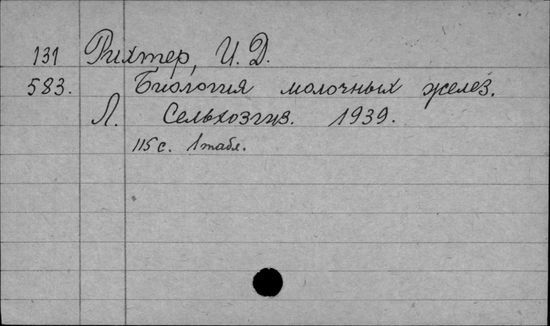 131 Рихтер, И. Д.
583. Биология молочных желёз.
Л. Сельхозгиз. 1939.
115 с. 1 табл.